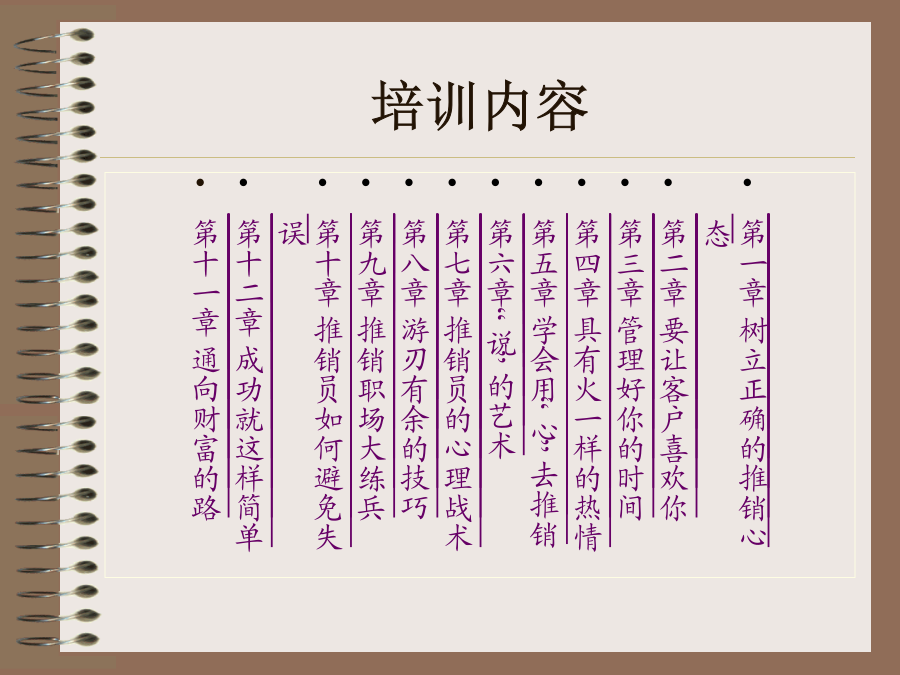 培训内容
第一章 树立正确的推销心
态
第二章 要让客户喜欢你
第三章 管理好你的时间
第四章 具有火一样的热情
第五章 学会用“心”去推销
第六章“说”的艺术
第七章 推销员的心理战术
第八章 游刃有余的技巧
第九章 推销职场大练兵
第十章 推销员如何避免失
误
第十二章 成功就这样简单
第十一章 通向财富的路